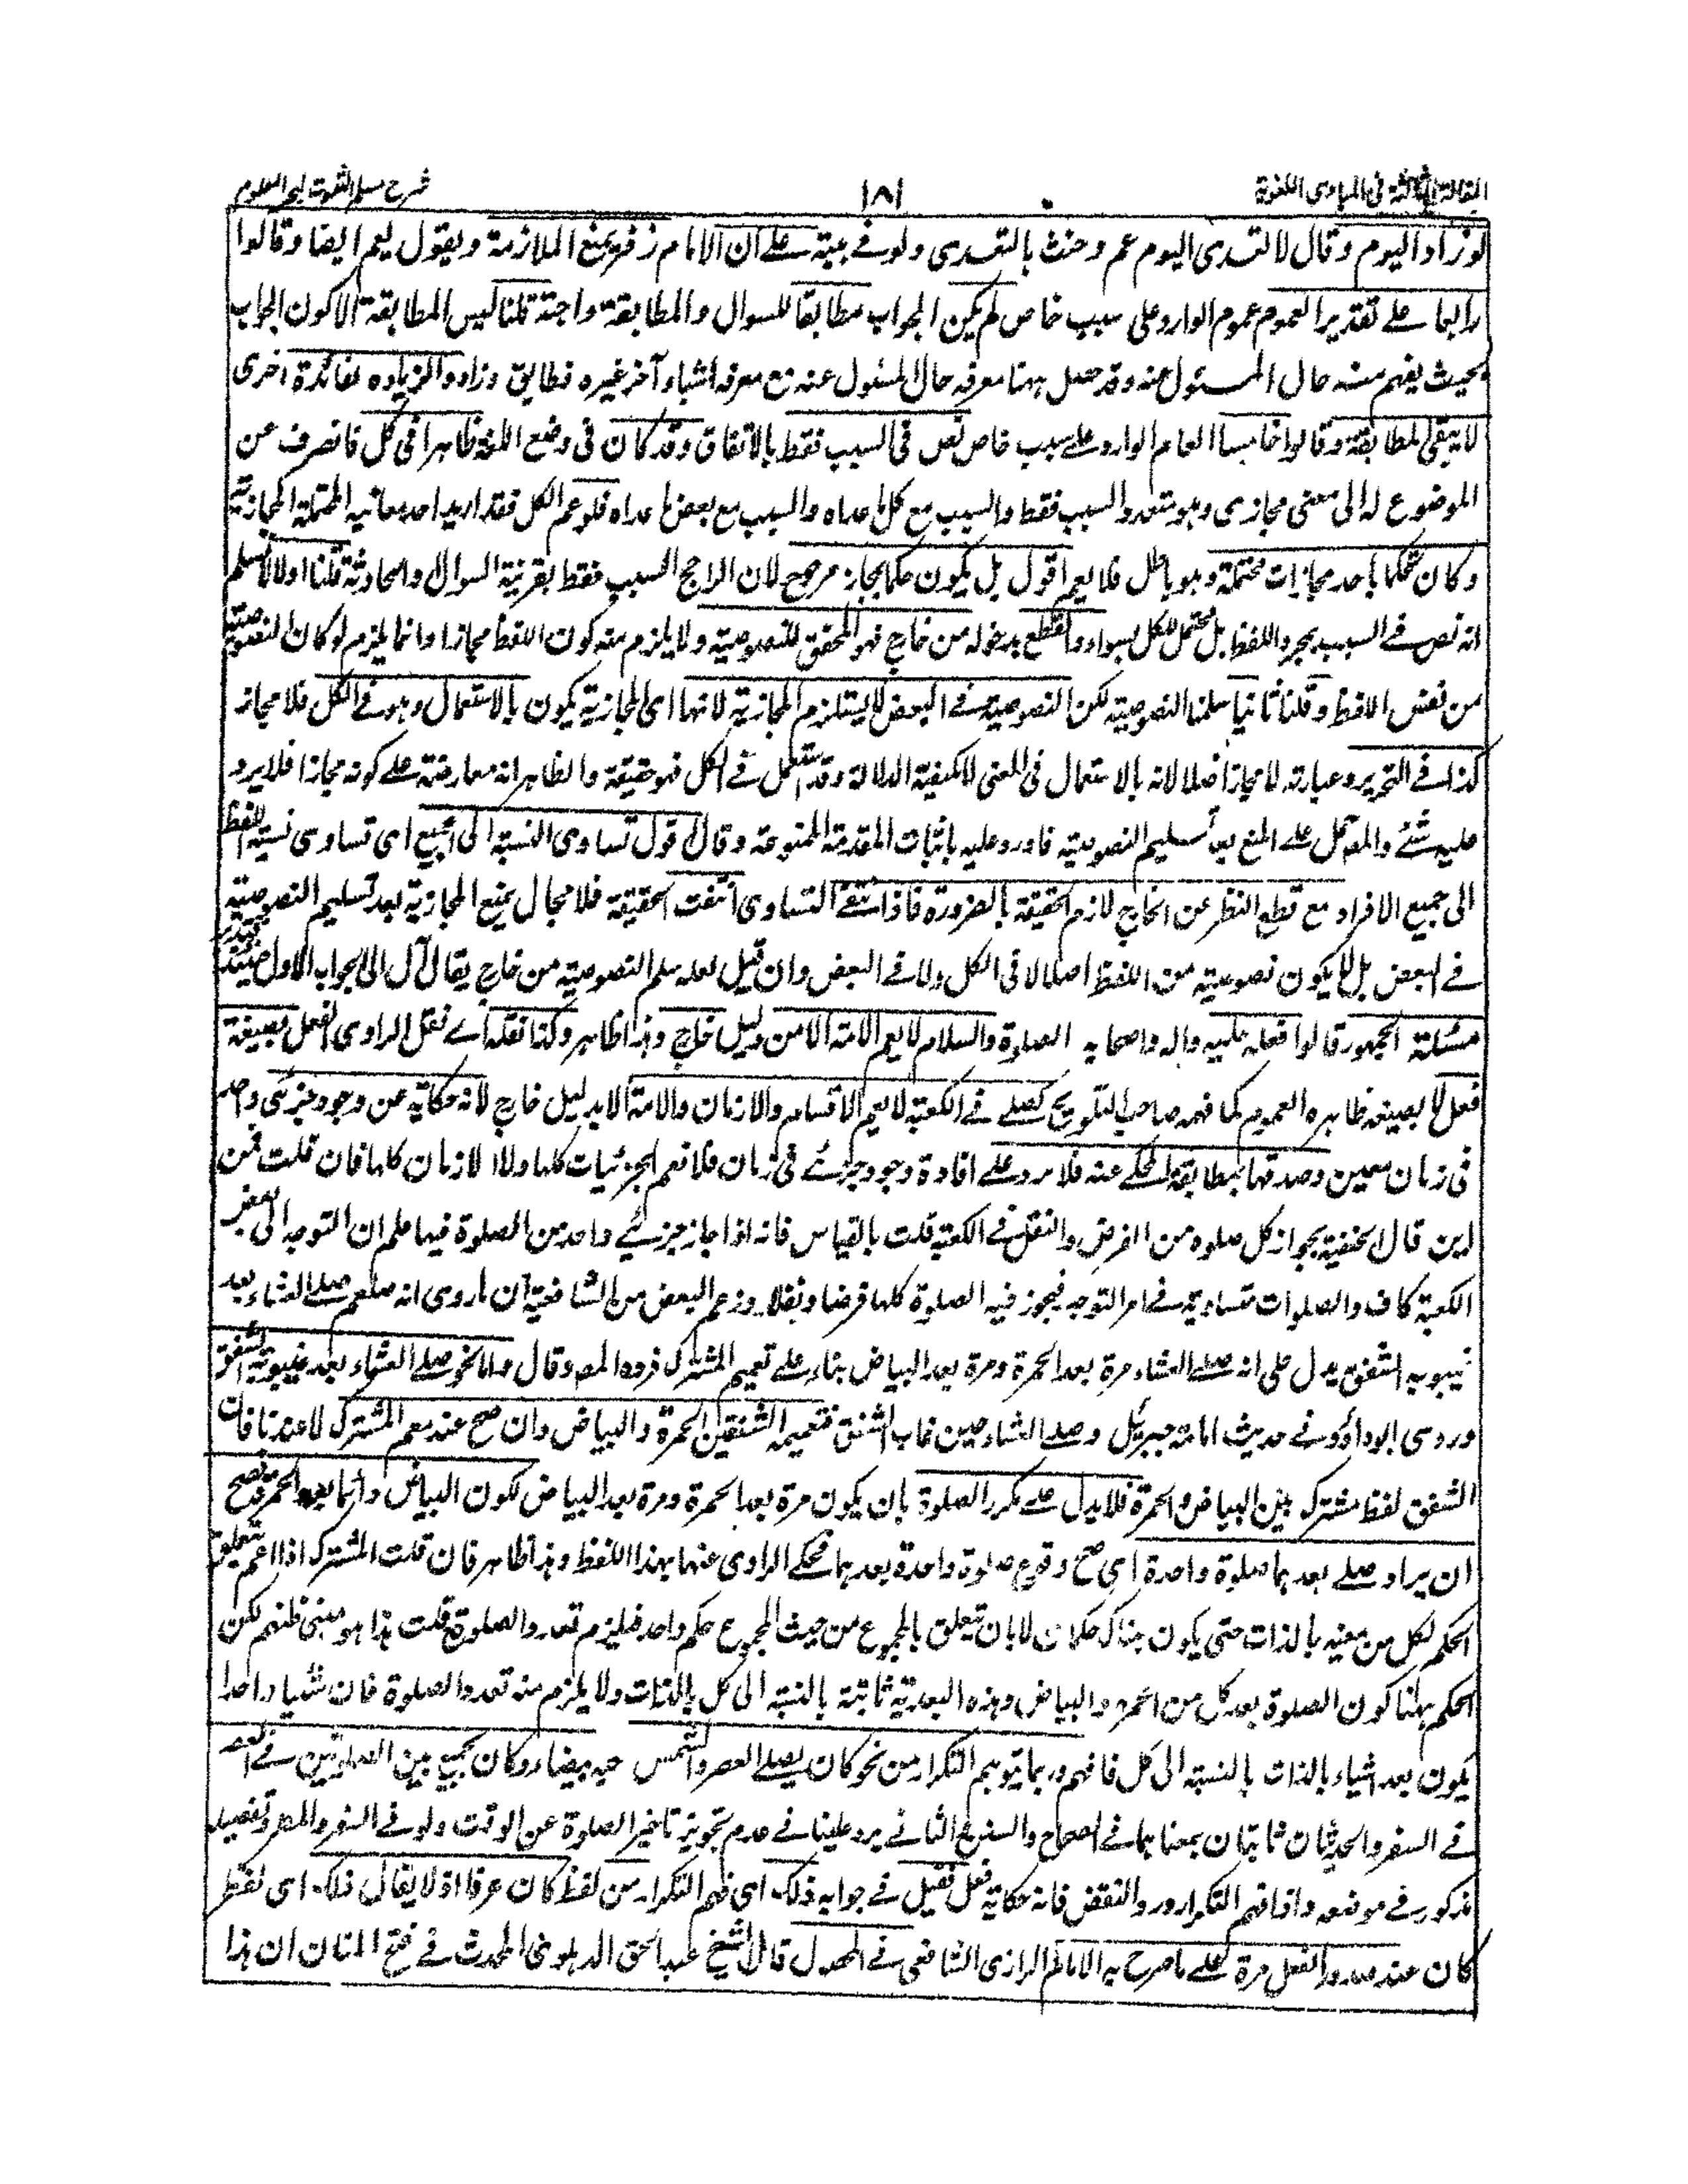 المقالة الثالثة فى المبادى اللغوية
١٨١
شرح مسلم الثبوت لبحر العلوم
لو زاد اليوم وقال لا اتغدى اليوم عم وحنث بالتغدى ولو فے بيته علے ان الامام زفر يمنع الملازمة ويقول يعم ايضا وقالوا
رابعا علے تقدير العموم عموم الوارد على سبب خاص لم يكن الجواب مطابقا للسوال والمطابقة واجبة قلنا ليس المطابقة الا كون الجواب
بحيث يفهم منه حال المسئول عنه وقد حصل ههنا معرفة حال المسئول عنه مع معرفة اشياء آخر غيره فطابق وزاد والزيادة لفائدة اخرى
لا ينفى المطابقة وقالوا خامسا العام الوارد علے سبب خاص نص فى السبب فقط بالاتفاق وقد كان فى وضع اللغة ظاهرا فى كل فانصرف عن
الموضوع له الى معنى مجازى وهو متعدد السبب فقط والسبب مع كل ما عداه والسبب مع بعض ما عداه فلو عم الكل فقد اريد احد معانيه المحتملة المجازية
وكان تحكما باحد مجازات محتملة وهو باطل فلا يعم اقول بل يكون حكما بمجاز مرجوح لان الراجح السبب فقط بقرينة السوال والحادثة قلنا اولا لا نسلم
انه نص فے السبب بمجرد اللفظ بل محتمل للكل بسواء والقطع بدخوله من خارج فهو المحقق للنصوصية ولا يلزم منه كون اللفظ مجازا وانما يلزم لو كان النصوصية
من نفس اللفظ وقلنا ثانيا سلمنا النصوصية لكن النصوصية فے البعض لا يستلزم المجازية لانها اى المجازية يكون بالاستعمال وهو فے الكل فلا مجاز
كذا فے التحرير وعبارته لا مجاز اصلا لانه بالاستعمال فى المعنى لا كيفية الدلالة وقد استعمل فے الكل فهو حقيقة والظاهر انه معارضة علے كونه مجازا فلا يرد
عليه شئ والمص حمل علے المنع بعد تسليم النصوصية فاورد عليه باثبات المقدمة الممنوعة وقال اقول تساوى النسبة الى الجميع اى تساوى نسبة اللفظ
الى جميع الافراد مع قطع النظر عن الخارج لازم الحقيقة بالضرورة فاذا انتفے التساوى انتفت الحقيقة فلا مجال بمنع المجازية بعد تسليم النصوصية
فے البعض بل لا يكون نصوصية من اللفظ اصلا لا فى الكل ولا فے البعض وان قيل لعله سلم النصوصية من خارج يقال آل الى الجواب الاول حينئذ فتدبر
مسئلة الجمهور قالوا فعله عليه واله واصحابه الصلوة والسلام لا يعم الامة الا من دليل خارج وهذا ظاهر وكذا نقله اے نقل الراوى الفعل بصيغة
فعل لا بصيغة ظاهره العموم كما فهمه صاحب التلويح كصلى فے الكعبة لا يعم الاقسام والازمان والامة الا بدليل خارج لانه حكاية عن وجود جزئى واحد
فى زمان معين وصدقها بمطابقة المحكے عنه فلا مرد علے افادة وجود جزئے فى زمان فلا تعم الجزئيات كلها ولا الازمان كلها فان قلت فمن
اين قال الحنفية بجواز كل صلوة من الفرض والنفل فے الكعبة قلت بالقياس فانه اذا جاز جزئے واحد من الصلوة فيها علم ان التوجه الى بعض
الكعبة كاف والصلوات متساوية فے امر التوجه فيجوز فيه الصلوة كلها فرضا ونفلا وزعم البعض من الشافعية ان ما روى انه صلعم صلے العشاء بعد
غيبوبة الشفق يدل على انه صلے العشاء مرة بعد الحمرة ومرة بعد البياض بناء علے تعميم المشترك فرده المص وقال واما نحو صلے العشاء بعد غيبوبة الشفق
وروى ابوداؤد فے حديث امامة جبرئيل وصلے العشاء حين غاب الشفق فتعميمه الشفقين الحمرة والبياض وان صح عند معمم المشترك لا عندنا فان
الشفق لفظ مشترك بين البياض والحمرة فلا يدل علے تكرر الصلوة بان يكون مرة بعد الحمرة ومرة بعد البياض لكون البياض دائما بعد الحمرة فيصح
ان يراد صلے بعدهما صلوة واحدة اى صح وقوع صلوة واحدة بعدهما فحكے الراوى عنها بهذا اللفظ وهذا ظاهر فان قلت المشترك اذا عم يتعلق
الحكم لكل من معنيه بالذات حتى يكون هناك حكمان لا بان يتعلق بالمجموع من حيث المجموع حكم واحد فيلزم تعدد الصلوة قلت هذا هو مبنى ظنهم لكن
الحكم ههنا كون الصلوة بعد كل من الحمرة والبياض وهذه البعدية ثابتة بالنسبة الى كل بالذات ولا يلزم منه تعدد الصلوة فان شيئا واحدا
يكون بعد اشياء بالذات بالنسبة الى كل فافهم وربما يتوهم التكرار من نحو كان يصلے العصر والشمس حية بيضاء وكان يجمع بين الصلوتين فے العصر
فے السفر والحديثان ثابتان بمعناهما فے الصحاح والسنن والثانے يرد علينا فے عدم تجويز تاخير الصلوة عن الوقت ولو فے السفر والمطر وتفصيله
مذكور فے موضعه واذا فهم التكرار ورد النقض فانه حكاية فعل فقيل فے جوابه ذلك اى فهم التكرار من لفظ كان عرفا اذ لا يقال ذلك اى لفظ
كان عند صدور الفعل مرة علے ما صرح به الامام الرازى الشافعى فے المحصول قال الشيخ عبد الحق الدهلوى المحدث فے فتح المنان ان هذا